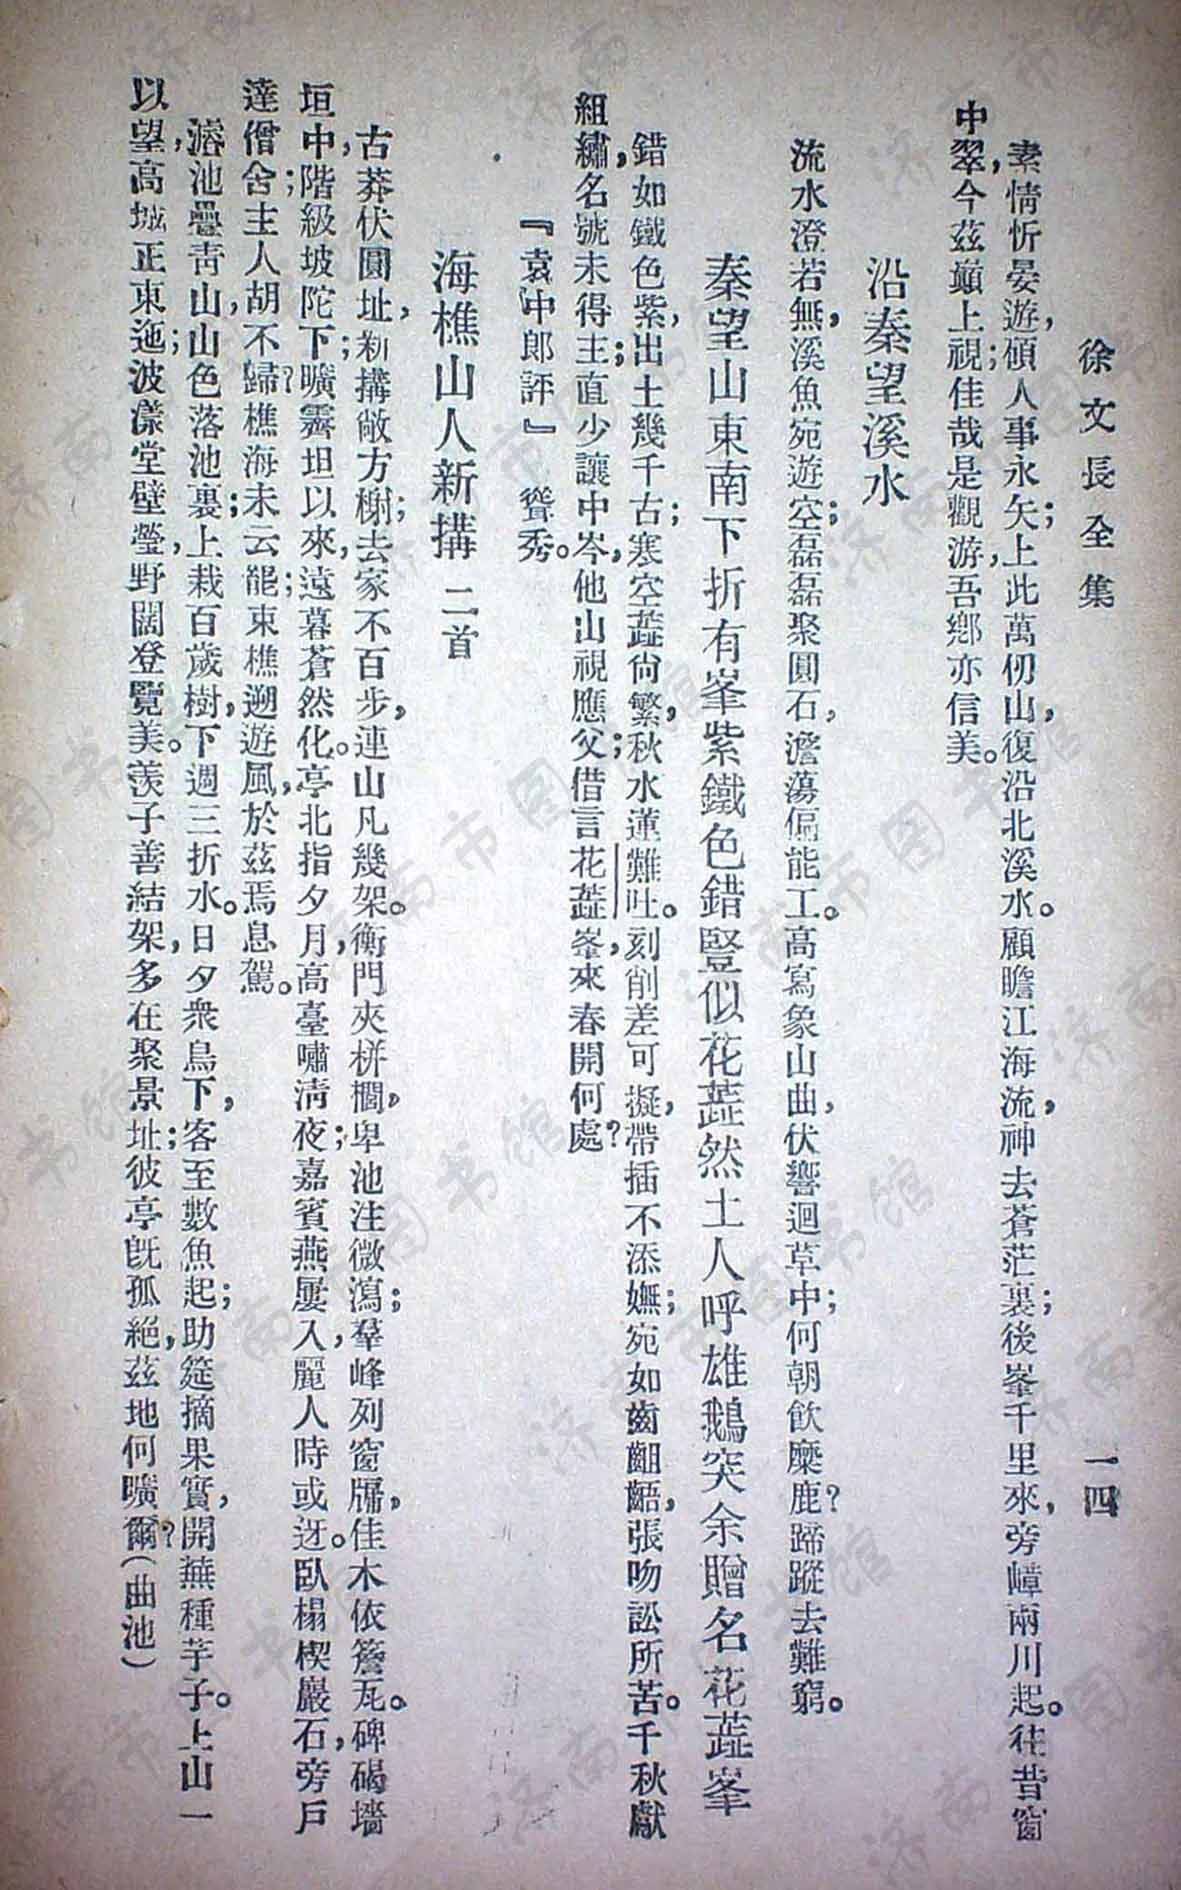 徐文長全集
一四
素情忻晏遊，碩人事永矣；上此萬仞山，復沿北溪水。顧瞻江海流，神去蒼茫裏；後峯千里來，旁嶂兩川起。往昔窗
中翠，今茲巔上視；佳哉是觀游，吾鄉亦信美。
沿秦望溪水
流水澄若無，溪魚宛遊空；磊磊聚圓石，澹蕩偏能工。高寫象山曲，伏響迴草中；何朝飲麋鹿？蹄蹤去難窮。
秦望山東南下折有峯紫鐵色錯豎似花蕋然土人呼雄鵝突余贈名花蕋峯
錯如鐵色紫，出土幾千古；寒空蕋尙繁，秋水蓮難吐。刻削差可擬，帶插不添嫵；宛如齒齟齬，張吻訟所苦。千秋獻
組繡，名號未得主；直少讓中岑，他山視應父；借言花蕋峯，來春開何處？
『袁中郎評』　聳秀。
海樵山人新搆　二首
古莽伏圓址，新搆敞方榭；去家不百步，連山凡幾架。衡門夾栟櫚，卑池注微瀉；羣峰列窗牖，佳木依簷瓦。碑碣墻
垣中，階級坡陀下；曠霽坦以來，遠暮蒼然化。亭北指夕月，高臺嘯淸夜；嘉賓燕屢入，麗人時或迓。臥榻楔巖石，旁戶
達僧舍；主人胡不歸？樵海未云能；束樵遡遊風，於茲焉息駕。
濬池疊靑山，山色落池裏；上栽百歲樹，下週三折水。日夕衆鳥下，客至數魚起；助筵摘果實，開蕪種芋子。上山一
以望，高城正東迤；波漾堂壁瑩，野闊登覽美。羨子善結架，多在聚景址；彼亭旣孤絕，茲地何曠爾？（曲池）